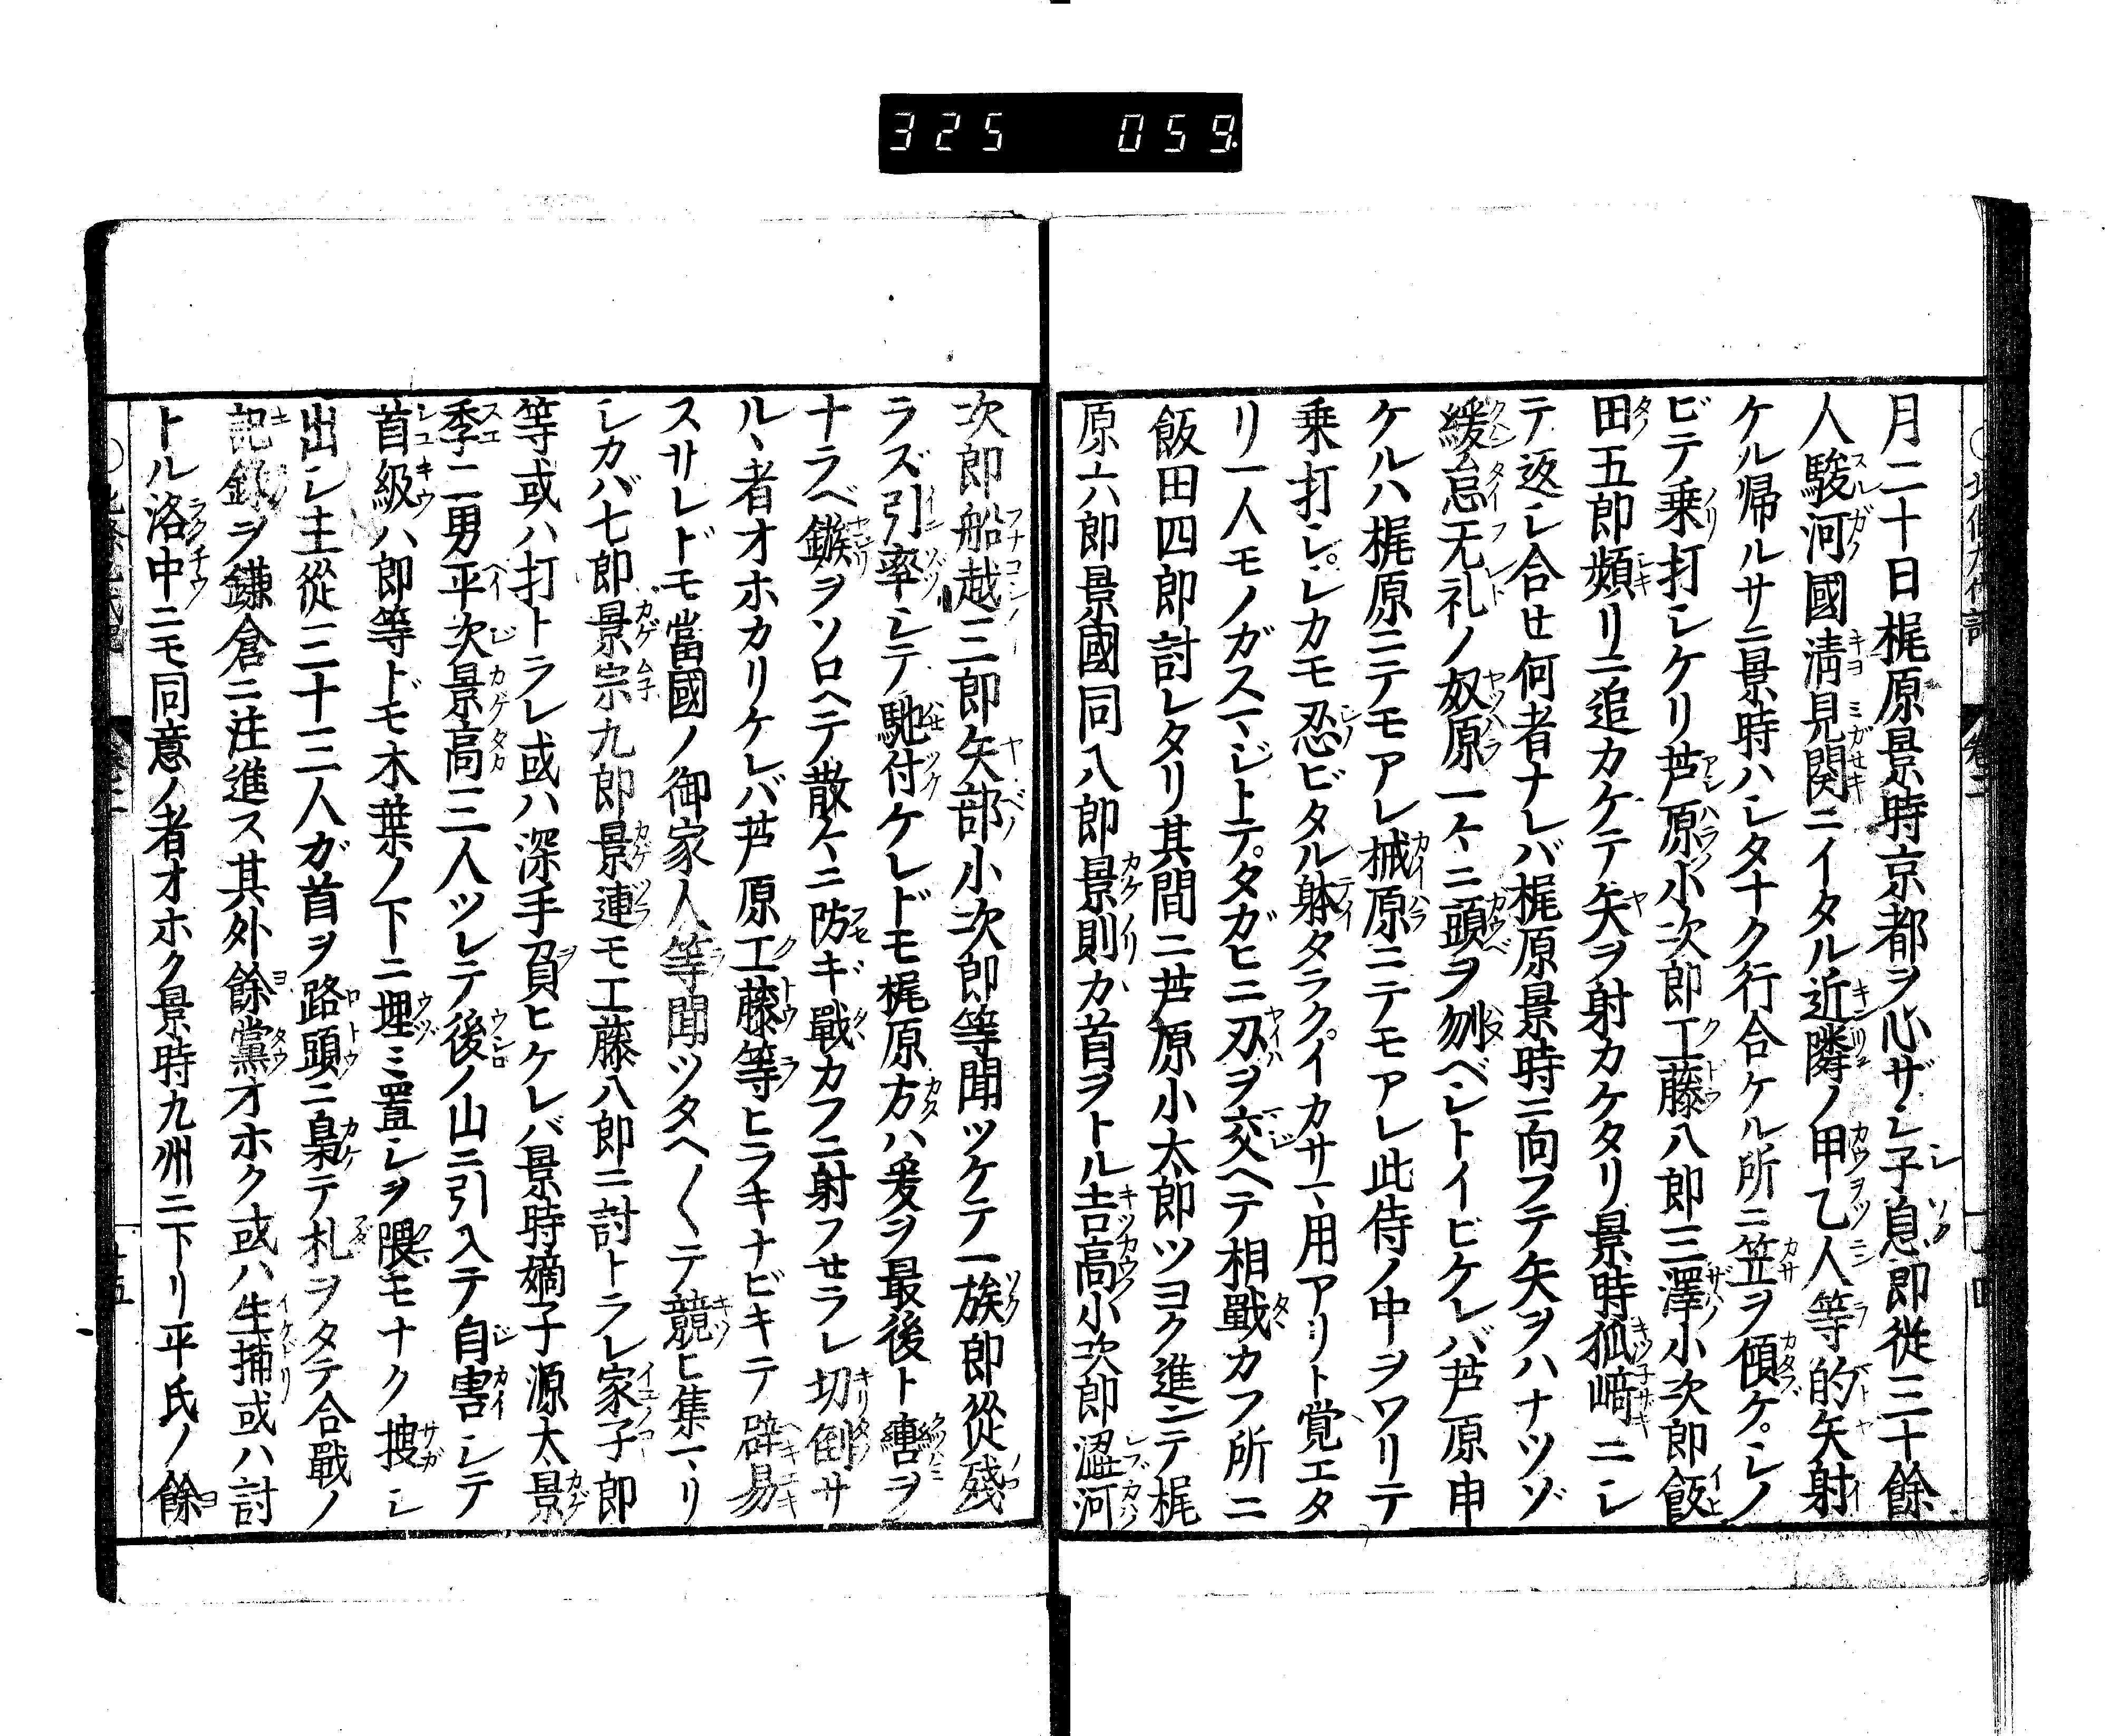 325 059
月二十日梶原景時京都ヲ心ザシ子息郎従三十餘
人駿河國淸見関ニイタル近隣ノ甲乙人等的矢射
ケル帰ルサニ景時ハシタナク行合ケル所ニ笠ヲ傾ケシノ
ビテ乗打シケリ芦原小次郎工藤八郎三澤小次郎飯
田五郎頻リニ追カケテ矢ヲ射カケタリ景時狐﨑ニシ
テ返シ合セ何者ナレバ梶原景時ニ向フテ矢ヲハナツゾ
緩怠无礼ノ奴原一々ニ頭ヲ刎ベシトイヒケレバ芦原申
ケルハ梶原ニテモアレ械原ニテモアレ此侍ノ中ヲワリテ
乗打シ。シカモ忍ビタル躰タラク。イカサマ、用アリト覚エタ
リ一人モノガスマジトテ。タガヒニ刃ヲ交ヘテ相戰カフ所ニ
飯田四郎討レタリ其間ニ芦原小太郎ツヨク進ンテ梶
原六郎景國同八郎景則カ首ヲトル吉高小次郎澁河
次郎船越三郎矢部小次郎等聞ツケテ一族郎從殘
ラズ引率シテ馳付ケレドモ梶原方ハ爰ヲ最後ト轡ヲ
ナラベ鏃ヲソロヘテ散々ニ防ギ戰カフニ射フセラレ切倒サ
ルヽ者オホカリケレバ芦原工藤等ヒラキナビキテ辟易
スサレドモ當國ノ御家人等聞ツタヘ〳〵テ競ヒ集マリ
シカバ七郎景宗九郎景連モ工藤八郎ニ討トラレ家子郎
等或ハ打トラレ或ハ深手負ヒケレバ景時嫡子源太景
季二男平次景高三人ツレテ後ノ山ニ引入テ自害シテ
首級ハ郎等ドモ木葉ノ下ニ埋ミ置シヲ隈モナク捜シ
出シ主從三十三人ガ首ヲ路頭ニ梟テ札ヲタテ合戰ノ
記録ヲ鎌倉ニ注進ス其外餘黨オホク或ハ生捕或ハ討
トル洛中ニモ同意ノ者オホク景時九州ニ下リ平氏ノ餘